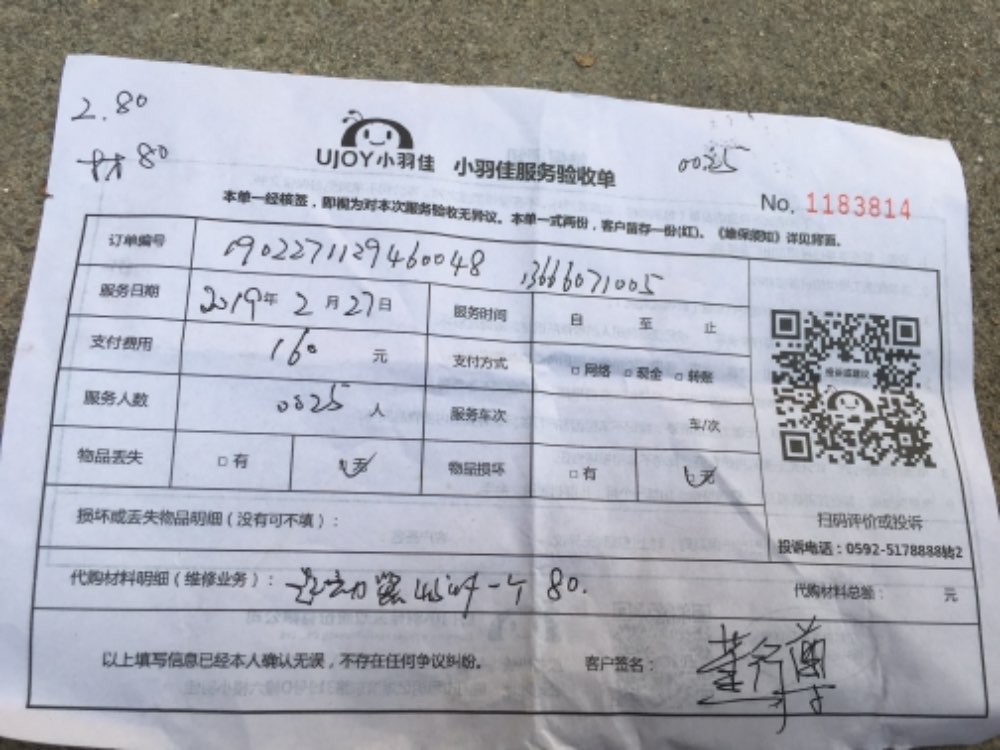 2.80
材 80
UJOY小羽佳 小羽佳服务验收单
0025
No. 1183814
本单一经核签，即视为对本次服务验收无异议。本单一式两份，客户留存一份(红)。《维保须知》详见背面。
订单编号 190227112946 0048 13666071005
服务日期 2019年 2 月 27日 服务时间 自 至 止
支付费用 160 元 支付方式 □ 网络 □ 现金 □ 转账
服务人数 0025 人 服务车次 车/次
物品丢失 □ 有 无 物品损坏 □ 有 无
损坏或丢失物品明细（没有可不填）：
扫码评价或投诉
投诉电话：0592-5178888转2
代购材料明细（维修业务）： 一个 80. 代购材料总额： 元
以上填写信息已经本人确认无误，不存在任何争议纠纷。 客户签名：